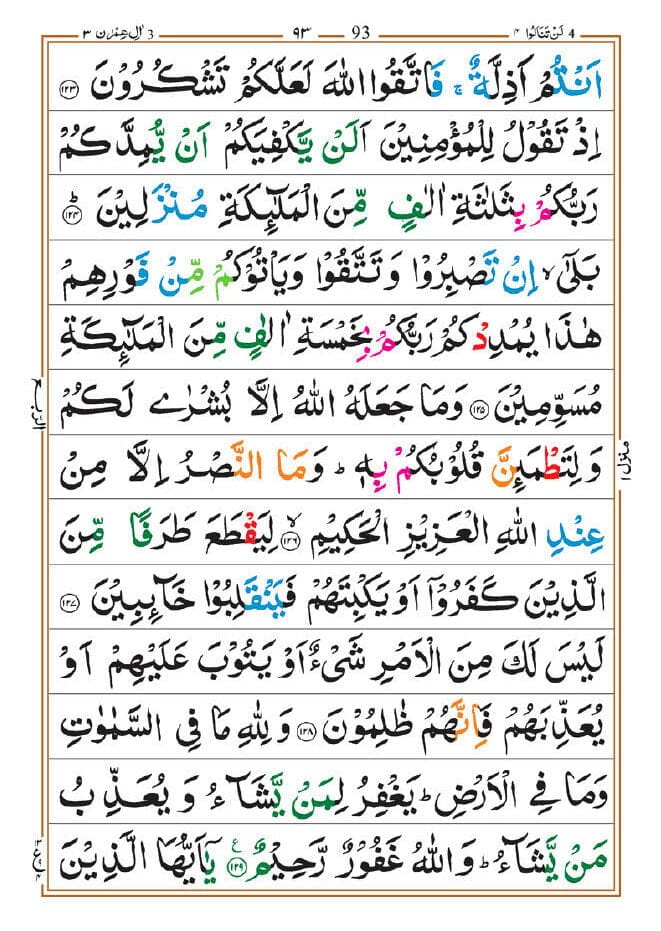 اٰل عِمْرٰن ٣ 3 ٩٣ 93 لَنْ تَنَالُوا ٤ 4
اَنْتُمْ اَذِلَّةٌ ۚ فَاتَّقُوا اللّٰهَ لَعَلَّكُمْ تَشْكُرُوْنَ ﴿١٢٣﴾
اِذْ تَقُوْلُ لِلْمُؤْمِنِيْنَ اَلَنْ يَّكْفِيَكُمْ اَنْ يُّمِدَّكُمْ
رَبُّكُمْ بِثَلٰثَةِ اٰلٰفٍ مِّنَ الْمَلٰٓئِكَةِ مُنْزَلِيْنَ ﴿١٢٤﴾ؕ
بَلٰٓى ۙ اِنْ تَصْبِرُوْا وَتَتَّقُوْا وَيَاْتُوْكُمْ مِّنْ فَوْرِهِمْ
هٰذَا يُمْدِدْكُمْ رَبُّكُمْ بِخَمْسَةِ اٰلٰفٍ مِّنَ الْمَلٰٓئِكَةِ
مُسَوِّمِيْنَ ﴿١٢٥﴾ وَمَا جَعَلَهُ اللّٰهُ اِلَّا بُشْرٰى لَكُمْ
وَلِتَطْمَئِنَّ قُلُوْبُكُمْ بِهٖ ؕ وَمَا النَّصْرُ اِلَّا مِنْ
عِنْدِ اللّٰهِ الْعَزِيْزِ الْحَكِيْمِ ﴿١٢٦﴾ۙ لِيَقْطَعَ طَرَفًا مِّنَ
الَّذِيْنَ كَفَرُوْٓا اَوْ يَكْبِتَهُمْ فَيَنْقَلِبُوْا خَآئِبِيْنَ ﴿١٢٧﴾
لَيْسَ لَكَ مِنَ الْاَمْرِ شَيْءٌ اَوْ يَتُوْبَ عَلَيْهِمْ اَوْ
يُعَذِّبَهُمْ فَاِنَّهُمْ ظٰلِمُوْنَ ﴿١٢٨﴾ وَلِلّٰهِ مَا فِى السَّمٰوٰتِ
وَمَا فِى الْاَرْضِ ؕ يَغْفِرُ لِمَنْ يَّشَآءُ وَيُعَذِّبُ
مَنْ يَّشَآءُ ؕ وَاللّٰهُ غَفُوْرٌ رَّحِيْمٌ ﴿١٢٩﴾ۧ يٰٓاَيُّهَا الَّذِيْنَ
الرّبع
منزل ١